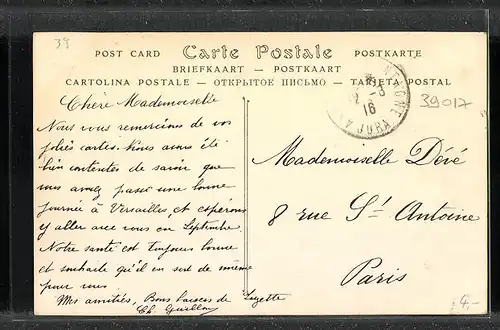 39
POST CARD Carte Postale POSTKARTE
BRIEFKAART — POSTKAART
CARTOLINA POSTALE — ОТКРЫТОЕ ПИСЬМО — TARJETA POSTAL
JURA
16
39017
Chère Mademoiselle
Nous vous remercions de vos
jolies cartes. Nous avons été
bien contentes de savoir que
vous avez passé une bonne
journée à Versailles, et espérons
y aller avec vous en Septembre
Notre santé est toujours bonne
et souhaite qu'il en soit de même
pour vous
Mes amitiés, Bons baisers de Suzette
Mademoiselle Dévé
8 rue St Antoine
Paris
4,-